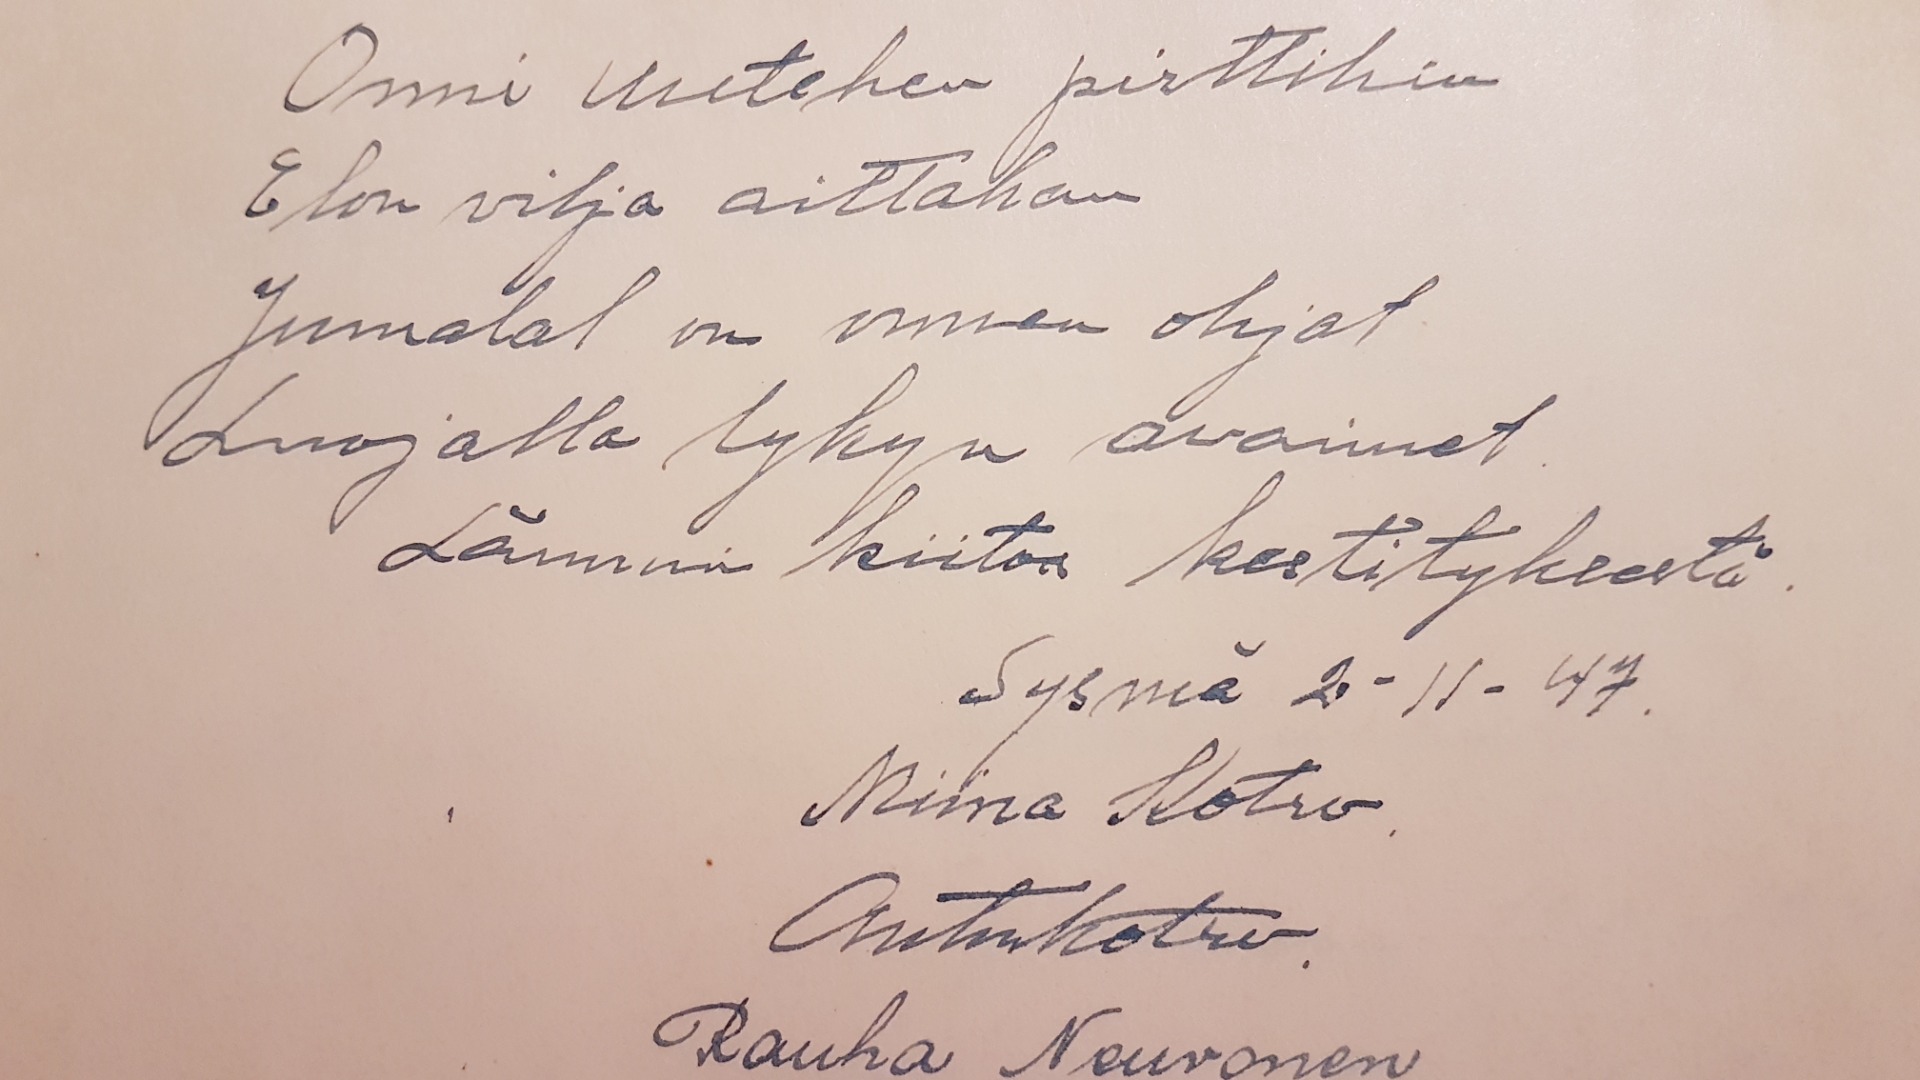 Onni uutehen pirttihin
Elon vilja aittahan
Jumalal on onnen ohjat
Luojalla lykyn avaimet.
Lämmin kiitos kestityksestä.
Sysmä 2-11-47.
Miina Kotro.
Anton Kotro.
Rauha Neuvonen